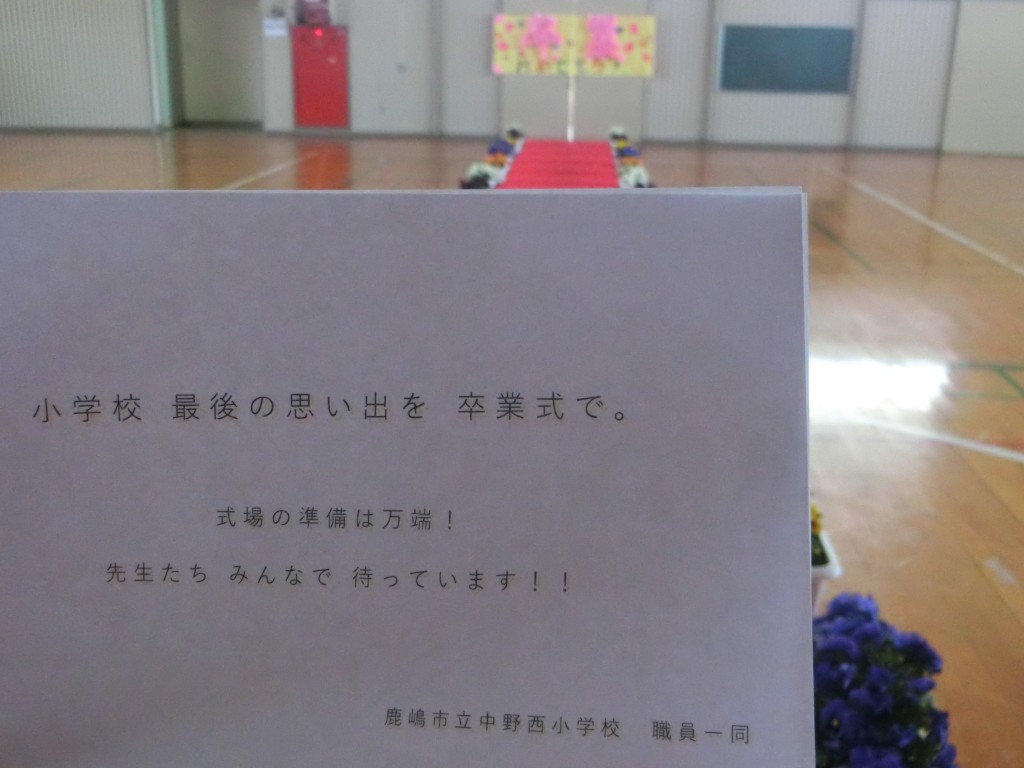 卒業
小学校 最後の思い出を 卒業式で。
式場の準備は万端！
先生たち みんなで 待っています！！
鹿嶋市立中野西小学校 職員一同